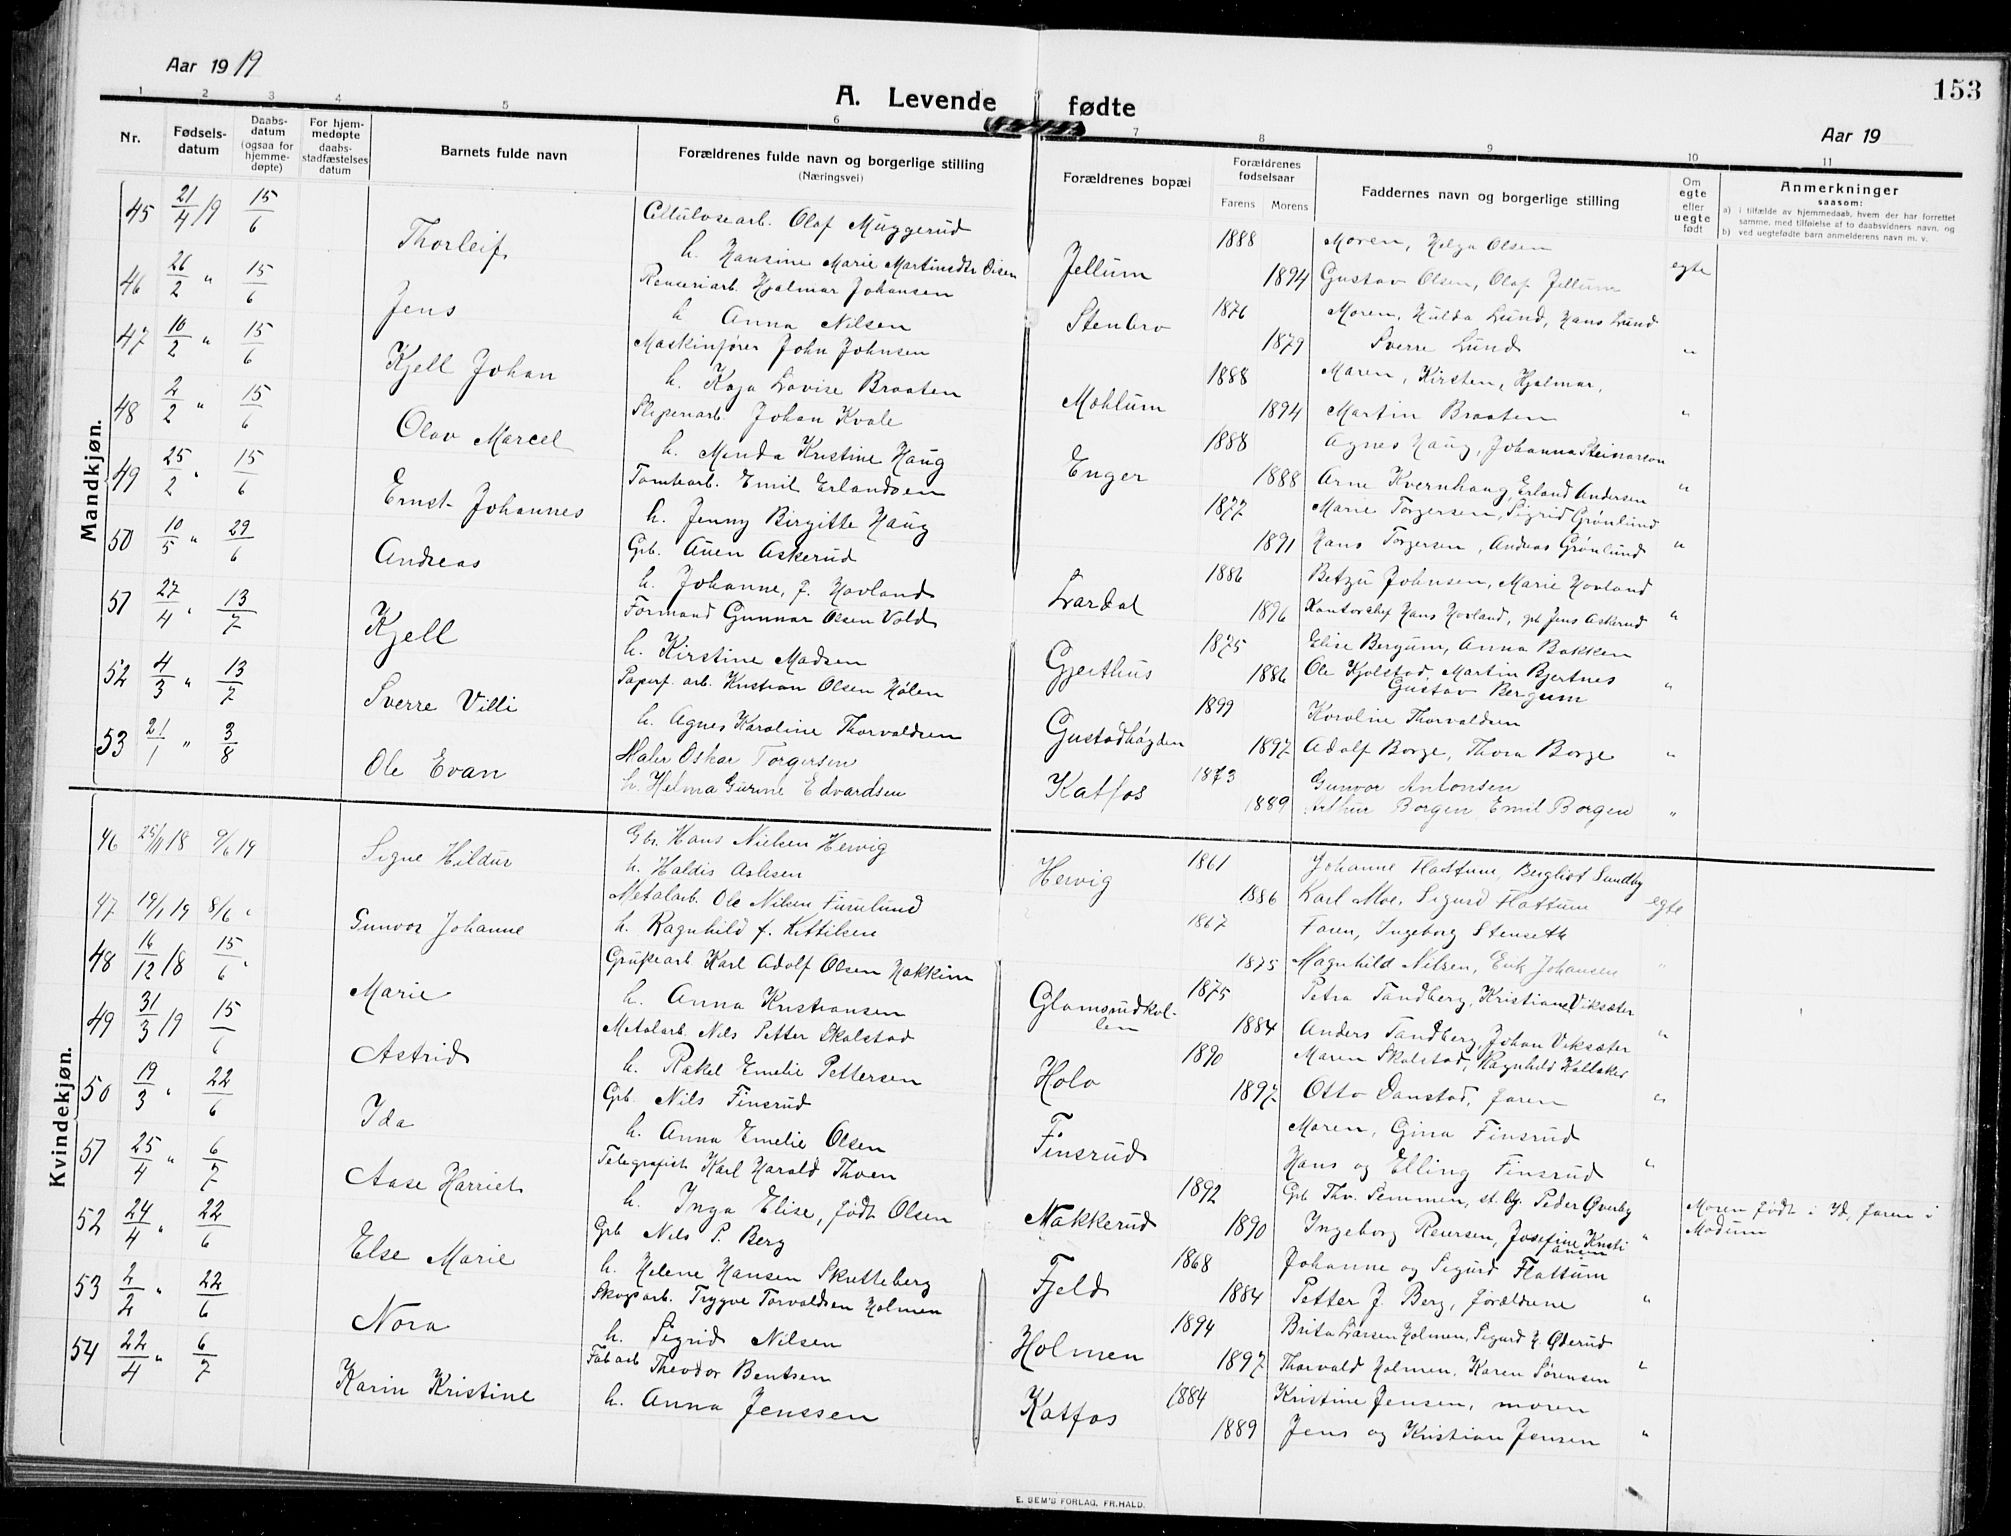 Aar 1919
A. Levende fødte
153
Aar 19
1 2 3 4 5 6 7 8 9 10 11
Nr.
Fødselsdatum
Daabsdatum (ogsaa for hjemmedøpte)
For hjemmedøpte daabsstadfæstelses datum
Barnets fulde navn
Forældrenes fulde navn og borgerlige stilling
(Næringsvei)
Forældrenes bopæl
Forældrenes fødselsaar
Farens Morens
Faddernes navn og borgerlige stilling
Om egte eller uegte født
Anmerkninger
saasom:
a) i tilfælde av hjemmedaab, hvem der har forrettet samme, med tilføielse af to daabsvidners navn, og
b) ved uegtefødte barn anmelderens navn m. v.
Mandkjøn.
45 21/4 19 15/6 Thorleif Cellulosearb. Olaf Muggerud Jellum 1888 Moren, Helga Olsen egte
h. Hansine Marie Martinsdtr Olsen 1894 Gustav Olsen, Olaf Jellum
46 26/2 " 15/6 Jens Renseriarb. Hjalmar Johansen Stenbro 1876 Moren, Hulda Lund, Hans Lund
h Anna Nilsen 1879 Sverre Lund "
47 10/2 " 15/6 Kjell Johan Maskinfører John Johnsen Mohlum 1888 Maren, Kirsten, Hjalmar,
h. Kaja Lovise Braaten 1894 Martin Braaten "
48 2/2 " 15/6 Olav Marcel Sliperiarb. Johan Kvale Enger 1888 Agnes Haug, Johanna
h. Menda Kristine Haug 1888 Arne Kvernhaug, Erland Andersen "
49 25/2 " 15/6 Ernst Johannes Tomtearb. Emil Erlandsen 1877 Marie Torgersen, Sigrid Grønlund
h. Jenny Birgitte Haug 1891 Hans Torgersen, Andreas Grønlund "
50 10/5 " 29/6 Andreas Grb. Auen Askerud Lardal 1886 Betzu Johnsen, Marie Hovland
h. Johanne, f. Hovland 1896 Kontorchef Hans Hovland, grb Jens Askerud "
51 27/4 " 13/7 Kjell Formand Gunnar Olsen Vold Gjeithus 1875 Elise Bergum, Anna Bakken
h. Kirstine Madsen 1886 Ole Kjolstad, Martin Bjertnes "
Gustav Bergum
52 4/3 " 13/7 Sverre Villi Papirf. arb. Kristian Olsen Hølen Gustadhøgden 1899 Karoline Thorvaldsen
h. Agnes Karoline Thorvaldsen 1897 Adolf Borge, Thora Borge "
53 21/1 " 3/8 Ole Evan Maler Oskar Torgersen Katfos 1873 Gunvor Antonsen
h. Helma Gurine Edvardsen 1889 Arthur Borgen Emil Borgen "
Kvindekjøn.
46 25/11 18 9/6 19 Signe Hildur Gbr. Hans Nielsen Hervig Hervig 1861 Johanne Flattum, Bergliot Sundby
h. Haldis Aslesen 1886 Karl Moe, Sigurd Flattum egte
47 19/1 19 8/6 " Gunvor Johanne Metalarb. Ole Nilsen Furulund 1867 Faren, Ingeborg Stenseth
h. Ragnhild f. Kittilsen 1875 Magnhild Nilsen, Erik Johansen "
48 16/12 18 15/6 " Marie Grubearb Karl Adolf Olsen Hakkim Glomsrudkollen 1875 Petra Tandberg, Kristiane Viksæter
h. Anna Kristiansen 1884 Anders Tandberg, Johan Viksæter "
49 31/3 19 15/6 Astrid Metalarb. Nils Petter Skalstad Holo 1890 Maren Skalstad, Ragnhild
h. Rakel Emelie Pettersen 1897 Otto Danstad, faren "
50 19/3 " 22/6 Ida Grb. Nils Finsrud Finsrud Moren, Gina Finsrud
h. Anna Emelie Olsen Hans og Elling Finsrud "
51 25/4 " 6/7 Aase Harriet Telegrafist Karl Harald Thoen Nakkerud 1892 Grb Thv. Semmen, Peder Øverby Moren født i Id, faren i
h. Inga Elise, født Olsen 1890 Ingeborg Reiersen, Josefine Kristiansen " Modum
52 24/4 " 22/6 Else Marie Grb Nils P. Berg Fjeld 1868 Johanne og Sigurd Flattum
h. Helene Hansen Skutteberg 1884 Petter J. Berg, forældrene "
53 2/2 " 22/6 Nora Skogsarb. Trygve Torvaldsen Holmen Holmen 1894 Brita Larsen Holmen, Sigurd H. Øderud
h. Sigrid Nilsen 1897 Thorvald Holmen, Karen Sørensen "
54 22/4 " 6/7 Karin Kristine Fabarb Theodor Bentsen Katfos 1884 Kristine Jensen, moren
h. Anna Jenssen 1889 Jens og Kristian Jensen "
E. SEM'S FORLAG, FR.HALD.